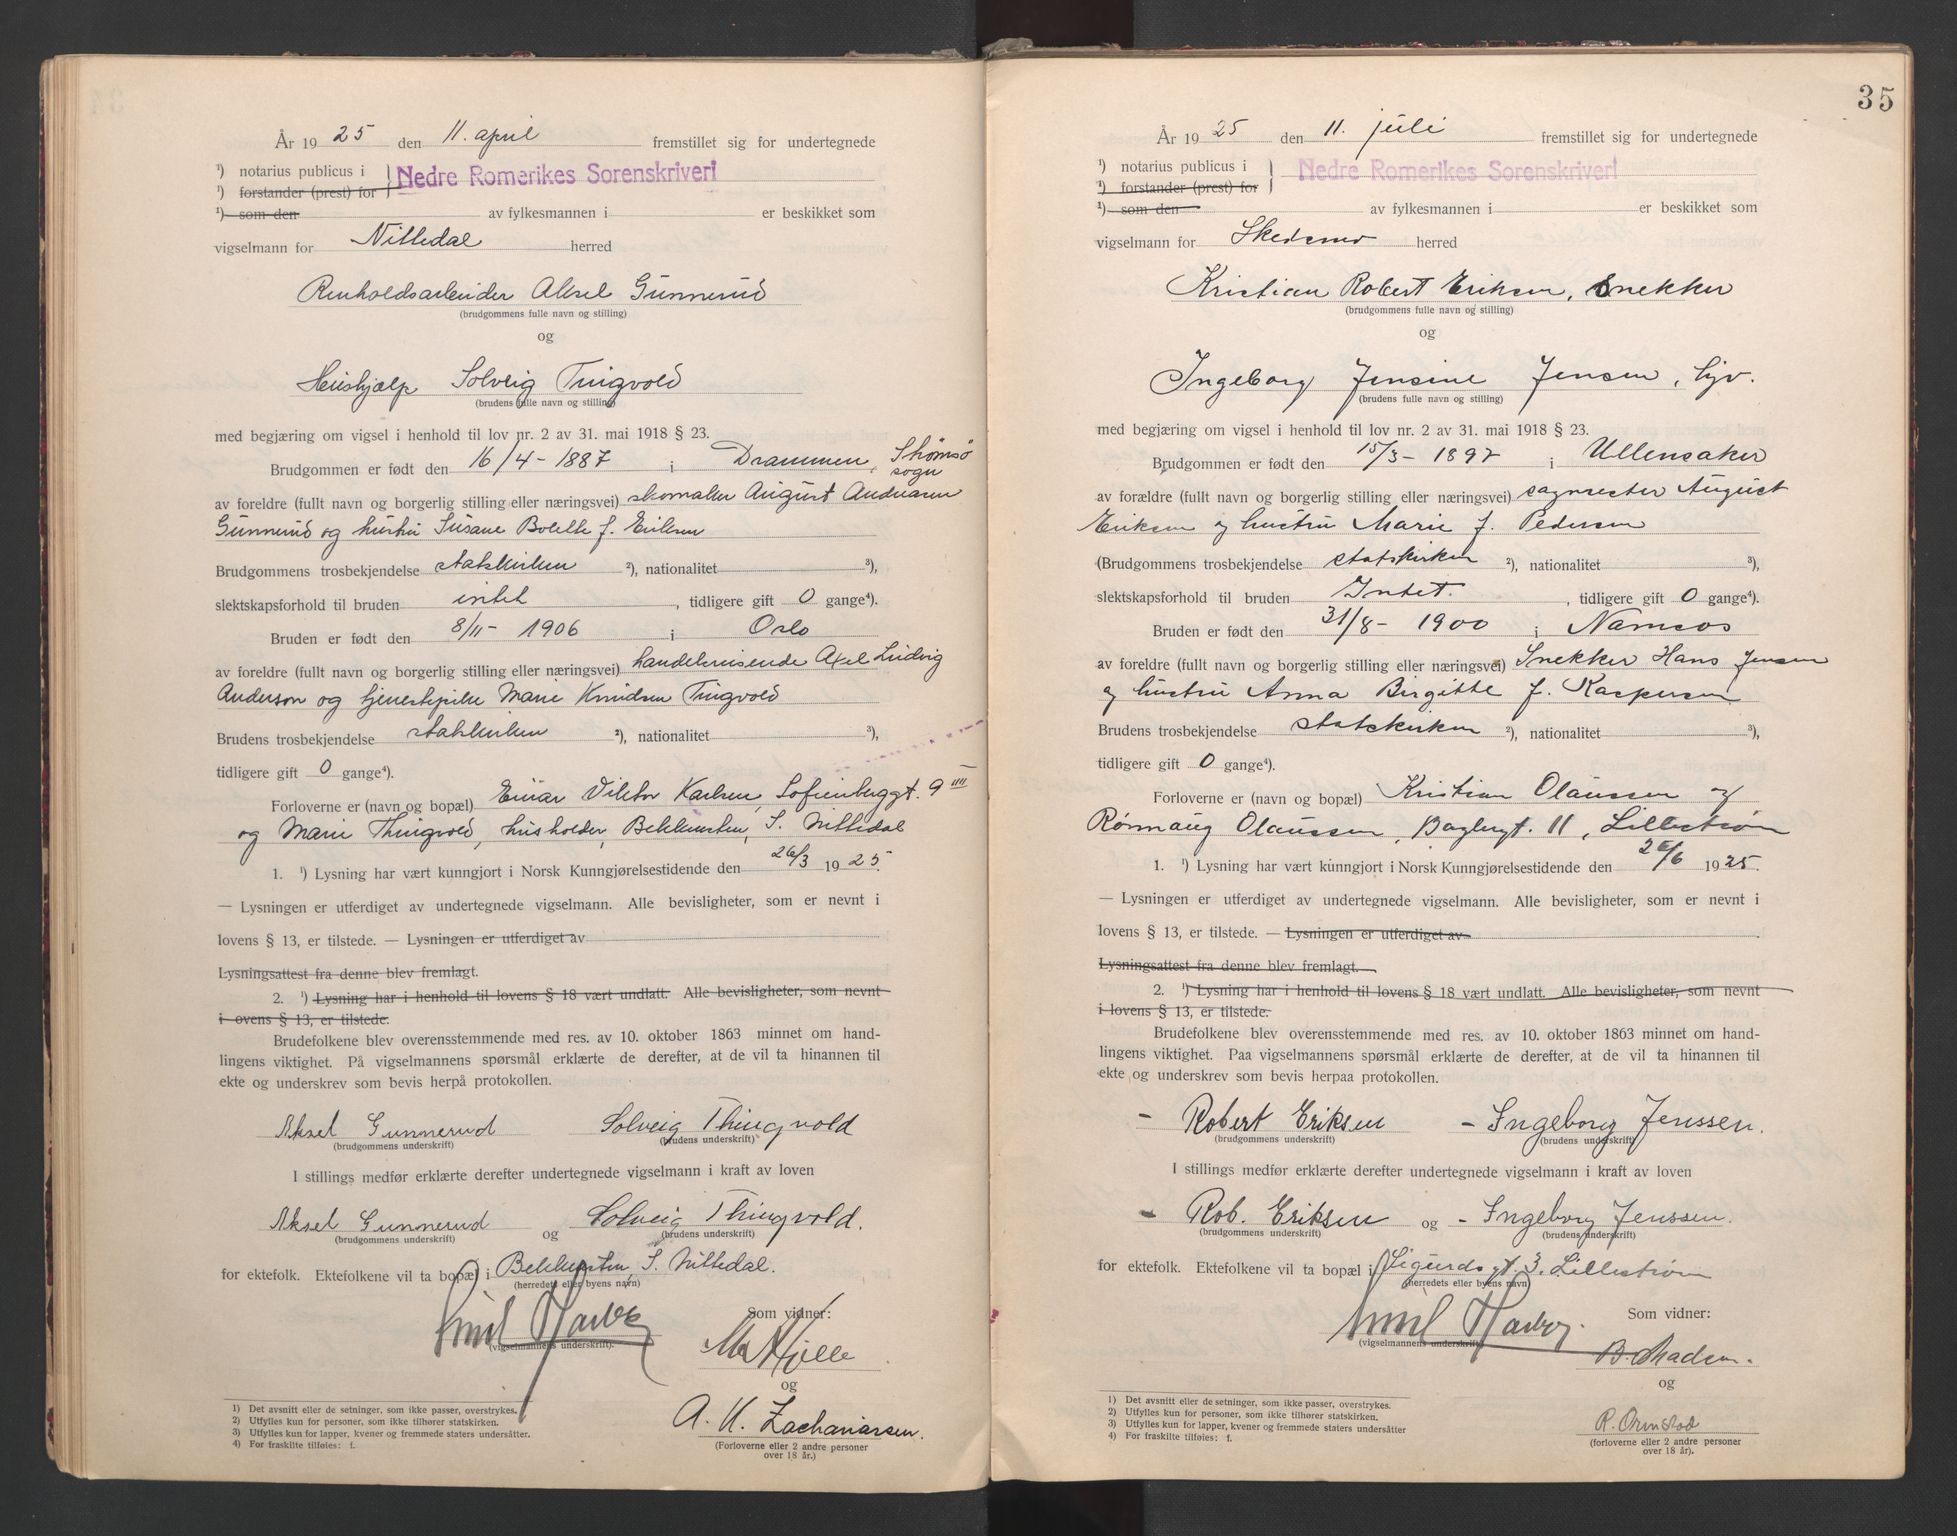 År 19 25 den 11. april fremstillet sig for undertegnede
¹) notarius publicus i } Nedre Romerikes Sorenskriveri
¹) forstander (prest) for
¹) som den av fylkesmannen i er beskikket som
vigselmann for Nittedal herred
Renholdsarbeider Aksel Gunnerud
(brudgommens fulle navn og stilling)
og
Hushjælp Solveig Tingvold
(brudens fulle navn og stilling)
med begjæring om vigsel i henhold til lov nr. 2 av 31. mai 1918 § 23.
Brudgommen er født den 16/4 - 1887 i Drammen, Strømsø sogn
av foreldre (fullt navn og borgerlig stilling eller næringsvei) skomaker August Andreasen
Gunnerud og hustru Susane Bolette f. Eriksen
Brudgommens trosbekjendelse statskirken ²), nationalitet ³),
slektskapsforhold til bruden intet, tidligere gift 0 gange⁴).
Bruden er født den 8/11 - 1906 i Oslo
av foreldre (fullt navn og borgerlig stilling eller næringsvei) handelsreisende Axel Ludvig
Anderson og tjenestepike Marie Knudsen Tingvold
Brudens trosbekjendelse statskirken ²), nationalitet ³),
tidligere gift 0 gange⁴).
Forloverne er (navn og bopæl) Einar Viktor Karlsen, Sofienberggt. 9 IIII
og Marie Thingvold, husholder, Bekkesten, S. Nittedal
1. ¹) Lysning har vært kunngjort i Norsk Kunngjørelsestidende den 26/3 1925.
— Lysningen er utferdiget av undertegnede vigselmann. Alle bevisligheter, som er nevnt i
lovens § 13, er tilstede. — Lysningen er utferdiget av
Lysningsattest fra denne blev fremlagt.
2. ¹) Lysning har i henhold til lovens § 18 vært undlatt. Alle bevisligheter, som nevnt
i ovens § 13, er tilstede.
Brudefolkene blev overensstemmende med res. av 10. oktober 1863 minnet om hand-
lingens viktighet. På vigselmannens spørsmål erklærte de derefter, at de vil ta hinannen til
ekte og underskrev som bevis herpå protokollen.
Aksel Gunnerud Solveig Thingvold
(brudgommens underskrift) (brudens underskrift)
I stillings medfør erklærte derefter undertegnede vigselmann i kraft av loven
Aksel Gunnerud og Solveig Thingvold.
(brudgommens underskrift) (brudens underskrift)
for ektefolk. Ektefolkene vil ta bopæl i Bekkesten, S. Nittedal.
(herredets eller byens navn)
Emil Som vidner:
(vigselmannens underskrift).
og
A. K. Zachariassen.
(Forloverne eller 2 andre personer
over 18 år.)
1) Det avsnitt eller de setninger, som ikke passer, overstrykes.
2) Utfylles kun for personer, som ikke tilhører statskirken.
3) Utfylles kun for lapper, kvener og fremmede staters undersåtter.
4) For fraskilte tilføies: f.
35
År 19 25 den 11. juli fremstillet sig for undertegnede
¹) notarius publicus i } Nedre Romerikes Sorenskriveri
¹) forstander (prest) for
¹) som den av fylkesmannen i er beskikket som
vigselmann for Skedsmo herred
Kristian Robert Eriksen, Snekker
(brudgommens fulle navn og stilling)
og
Ingeborg Jensine Jensen, syv.
(brudens fulle navn og stilling)
med begjæring om vigsel i henhold til lov nr. 2 av 31. mai 1918 § 23.
Brudgommen er født den 15/3 - 1897 i Ullensaker
av forældre (fullt navn og borgerlig stilling eller næringsvei) sagmester August
Eriksen og hustru Marie f. Pedersen
(Brudgommens trosbekjendelse statskirken ²), nationalitet ³),
slektskapsforhold til bruden Intet., tidligere gift 0 gange⁴).
Bruden er født den 31/8 - 1900 i Namsos
av foreldre (fullt navn og borgerlig stilling eller næringsvei) Snekker Hans Jensen
og hustru Anna Birgitte f. Kaspersen
Brudens trosbekjendelse statskirken ²), nationalitet ³),
tidligere gift 0 gange⁴).
Forloverne er (navn og bopæl) Kristian Olaussen og
Rønnaug Olaussen, Baglergt. 11, Lillestrøm
1. ¹) Lysning har vært kunngjort i Norsk Kunngjørelsestidende den 26/6 1925.
— Lysningen er utferdiget av undertegnede vigselmann. Alle bevisligheter, som er nevnt i
lovens § 13, er tilstede. — Lysningen er utferdiget av
Lysningsattest fra denne blev fremlagt.
2. ¹) Lysning har i henhold til lovens § 18 vært undlatt. Alle bevisligheter, som nevnt
i lovens § 13, er tilstede.
Brudefolkene blev overensstemmende med res. av 10. oktober 1863 minnet om hand-
lingens viktighet. Paa vigselmannens spørsmål erklærte de derefter, at de vil ta hinannen til
ekte og underskrev som bevis herpaa protokollen.
- Robert Eriksen - Ingeborg Jenssen.
(brudgommens underskrift) (brudens underskrift)
I stillings medfør erklærte derefter undertegnede vigselmann i kraft av loven
- Rob. Eriksen og - Ingeborg Jenssen.
(brudgommens underskrift) (brudens underskrift)
for ektefolk. Ektefolkene vil ta bopæl i Sigurdsgt. 3. Lillestrøm
(herredets eller byens navn)
Emil Som vidner:
(vigselmannens underskrift)
B. Madsen.
og
R. Ormstad
(forloverne eller 2 andre personer
over 18 år).
1) Det avsnitt eller de setninger, som ikke passer, overstrykes.
2) Utfylles kun for personer, som ikke tilhører statskirken.
3) Utfylles kun for lapper, kvener og fremmede staters undersåtter
4) For fraskilte tilføies: f.